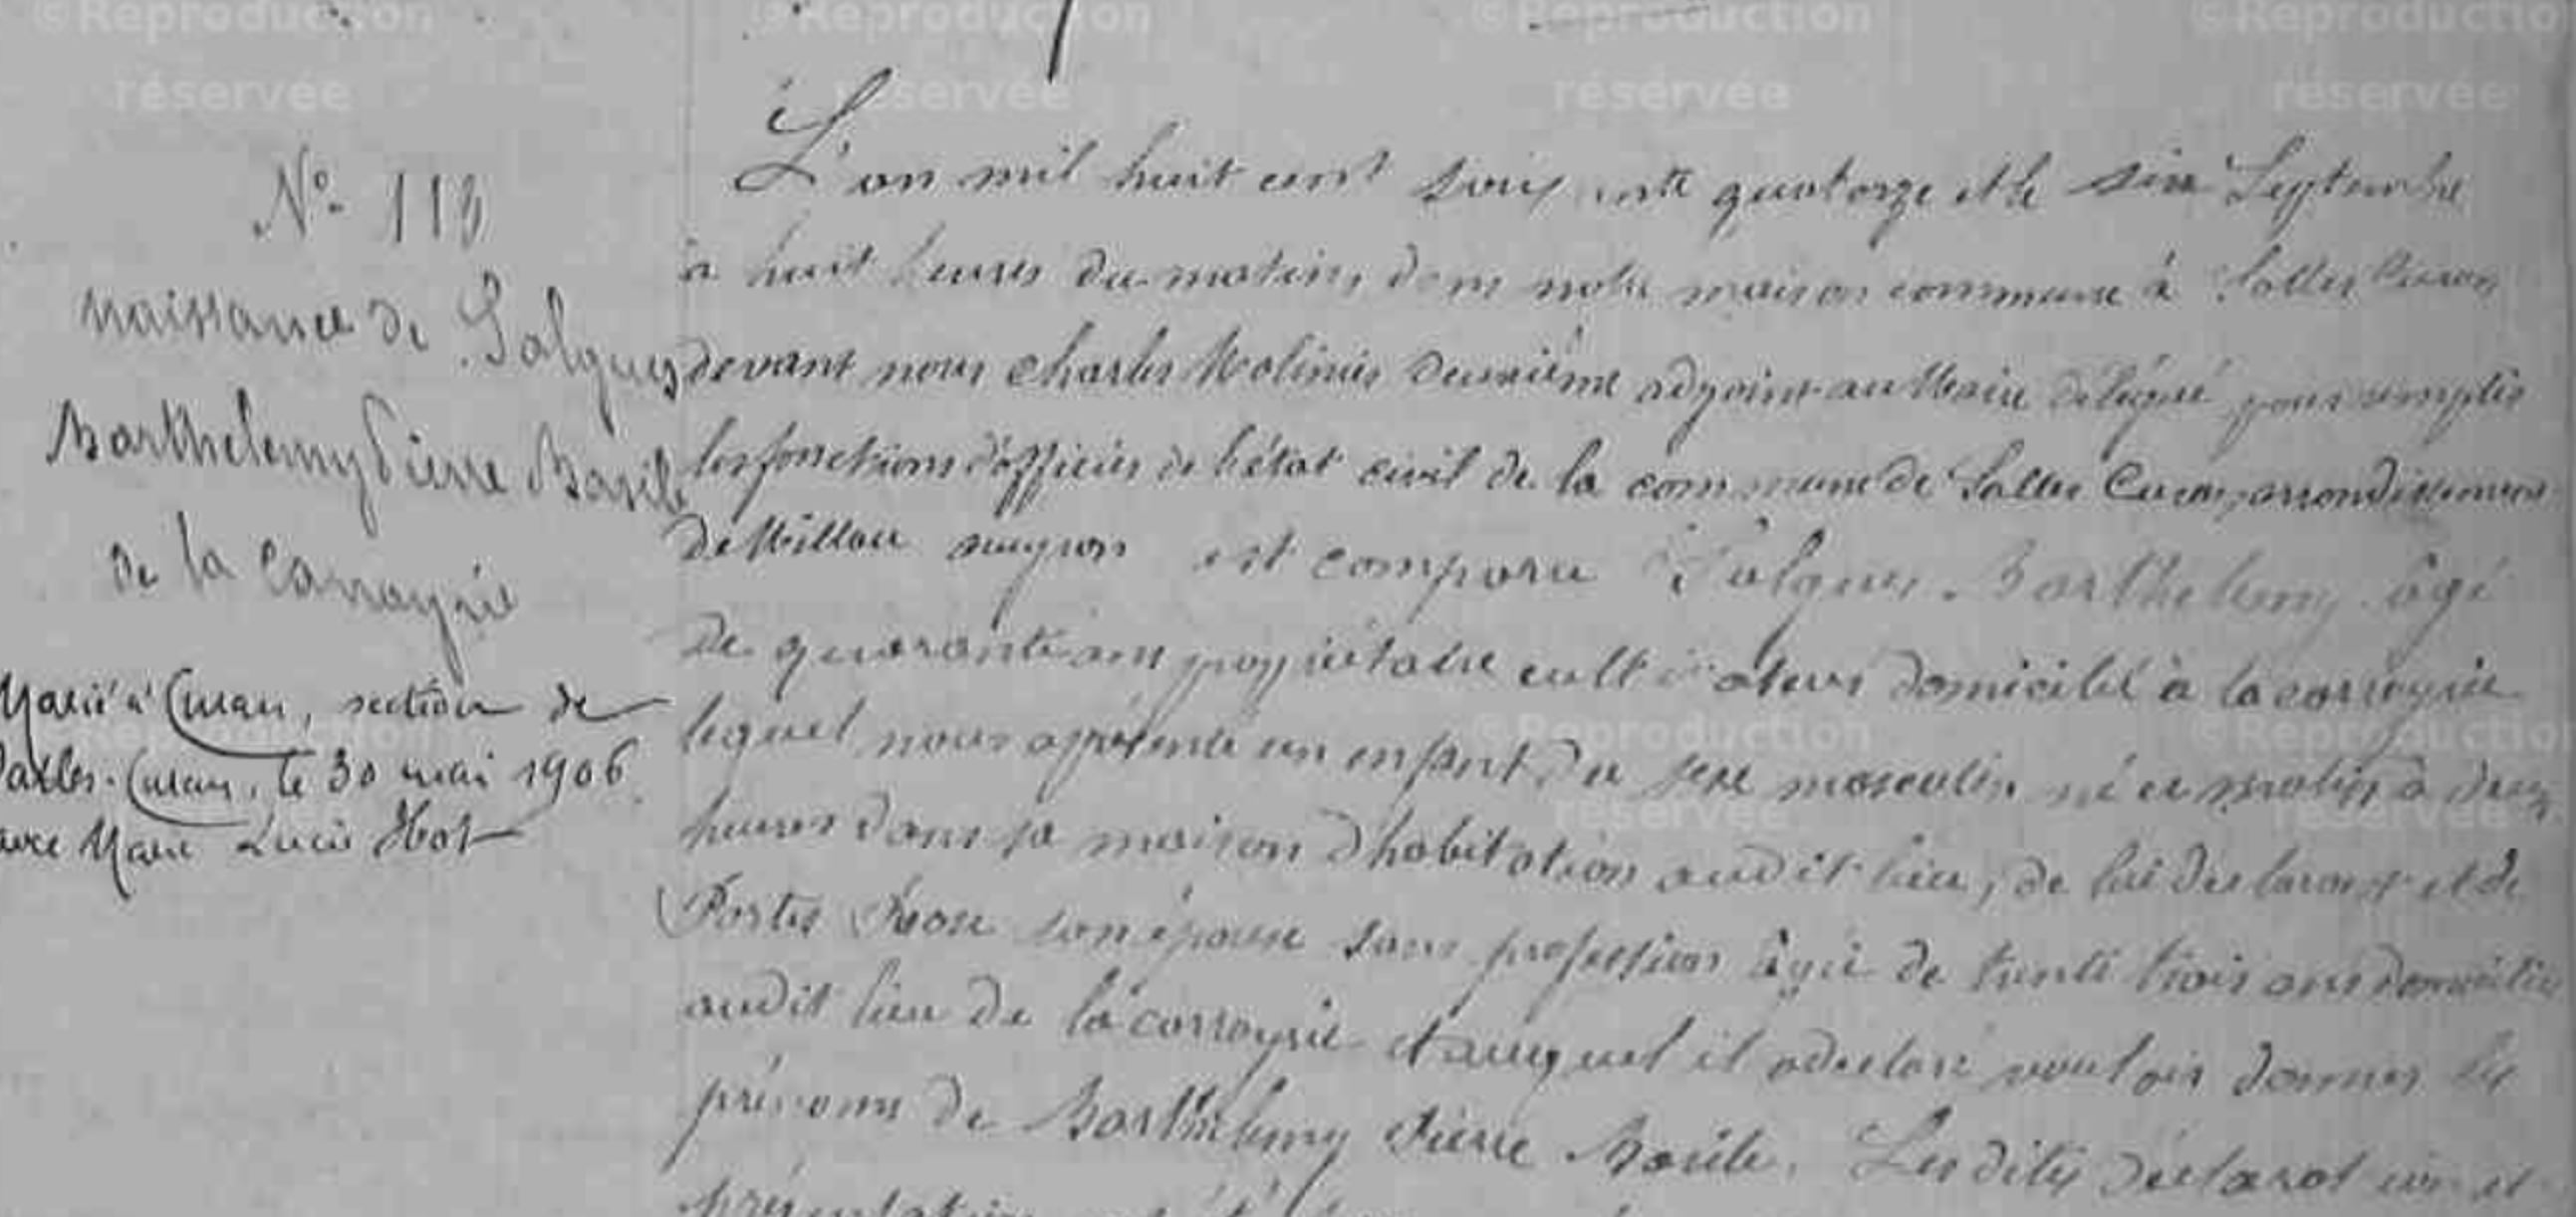 ©Reproduction réservée
N° 113
naissance de Salgues
Barthelemy Pierre Basile
de la Carrayrie
Marié à Curan, section de
Salles-Curan, le 30 mai 1906
avec Marie Lucie Hot
L'an mil huit cent soixante quatorze et le six Septembre
à huit heures du matin, dans notre maison commune à Salles Curan
devant nous Charles Molinié deuxième adjoint au Maire délégué pour remplir
les fonctions d'officier de l'état civil de la commune de Salles Curan, arrondissement
de Millau aveyron est comparu Salgues Barthelemy âgé
de quarante ans propriétaire cultivateur domicilié à la carrayrie
lequel nous a présenté un enfant du sexe masculin né ce matin à deux
heures dans sa maison d'habitation audit lieu, de lui déclarant et de
Portes Rose son épouse sans profession âgée de trente trois ans domiciliée
audit lieu de la carrayrie et auquel il a déclaré vouloir donner les
prénoms de Barthelemy Pierre Basile. Les dites déclaration et
présentation